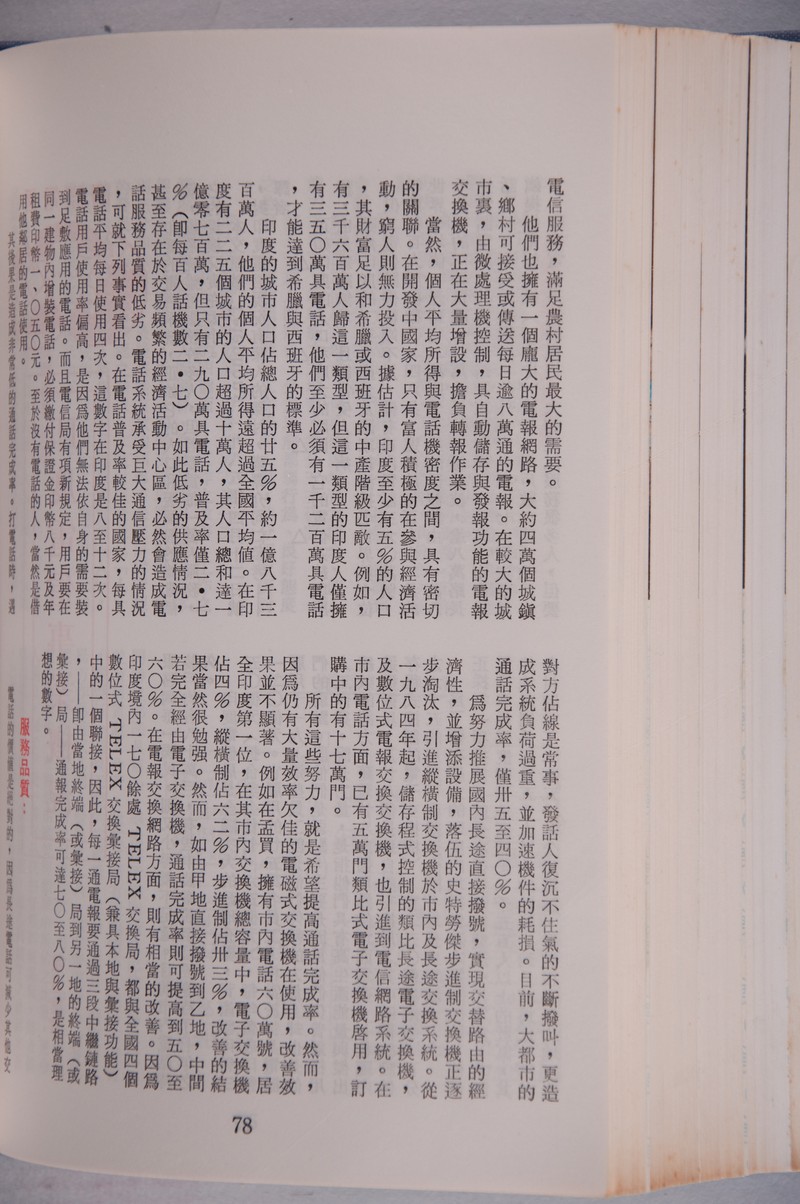 電信服務，滿足農村居民最大的需要。
他們也擁有一個龐大的電報網路，大約四萬個城鎭
、鄉村可接受或傳送每日逾八萬通的電報。在較大的城
市裏，由微處理機控制，具自動儲存與發報功能的電報
交換機，正在大量增設，擔負轉報作業。
當然，個人平均所得與電話機密度之間，具有密切
的關聯。在開發中國家，只有富人積極的在參與經濟活
動，窮人則無力投入。據估計，印度至少有五％的人口
，其財富足以和希臘或西班牙的中產階級匹敵。例如，
有三千六百萬人歸這一類型，但這一類型的印度人僅擁
有三五〇萬具電話，他們至少必須有一千二百萬具電話
，才能達到希臘與西班牙的標準。
印度的城市人口佔總人口的廿五％，約一億八千三
百萬人，他們的個人平均所得遠超過全國平均値。在印
度有二二五個城市的人口超過十萬人，其人口總和達一
億零七百萬，但只有二九〇萬具電話，普及率僅二•七
％（卽每百人話機數二•七）。如此低劣的供應情況，
甚至存在於交易頻繁的經濟活動中心區，必然會造成電
話服務品質的低劣。電話系統承受巨大通信壓力的情況
，可就下列事實看出。在電話普及率較佳的國家，每具
電話平均每日使用四次，這數字在印度是八至十二次。
電話用戶使用率偏高，是因爲他們無法依自身的需要裝
到足敷應用的電話。而且電信局有項新規定，用戶要在
同一建物內增裝電話，必須繳付保證金印幣八千元及年
租費印幣一、〇五〇元。至於沒有電話的人，當然是借
用他鄰居的電話使用。
其後果是造成非常低的通話完成率。打電話時，遇
對方佔線是常事，發話人復沉不住氣的不斷撥叫，更造
成系統負荷過重，並加速機件的耗損。目前，大都市的
通話完成率，僅卅五至四〇％。
爲努力推展國內長途直接撥號，實現交替路由的經
濟性，並增添設備，落伍的史特勞傑步進制交換機正逐
步淘汰，引進縱橫制交換機於市內及長途交換系統。從
一九八四年起，儲存程式控制的類比長途電子交換機，
及數位式電報交換交換機，也引進到電信網路系統。在
市內電話方面，已有五萬門類比式電子交換機啓用，訂
購中的有十七萬門。
所有這些努力，就是希望提高通話完成率。然而，
因爲仍有大量效率欠佳的電磁式交換機在使用，改善效
果並不顯著。例如在孟買，擁有市內電話六〇萬號，居
全印度第一位，在其市內交換機總容量中，電子交換機
佔四％，縱橫制佔六二％，步進制佔卅三％，改善的結
果當然很勉强。然而，如由甲地直接撥號到乙地，中間
若完全經由電子交換機，通話完成率則可提高到五〇至
六〇％。在電報交換網路方面，則有相當的改善。因爲
印度境內一七〇餘處 TELEX 交換局，都與全國四個
數位式 TELEX 交換彙接局（兼具本地與彙接功能）
中的一個聯接，因此，每一通電報要通過三段中繼鏈路
，——卽由當地終端（或彙接）局到另一地的終端（或
彙接）局——通報完成率可達七〇至八〇％，是相當理
想的數字。
服務品質：
電話的價値是絕對的，因爲長途電話可減少其他交
78